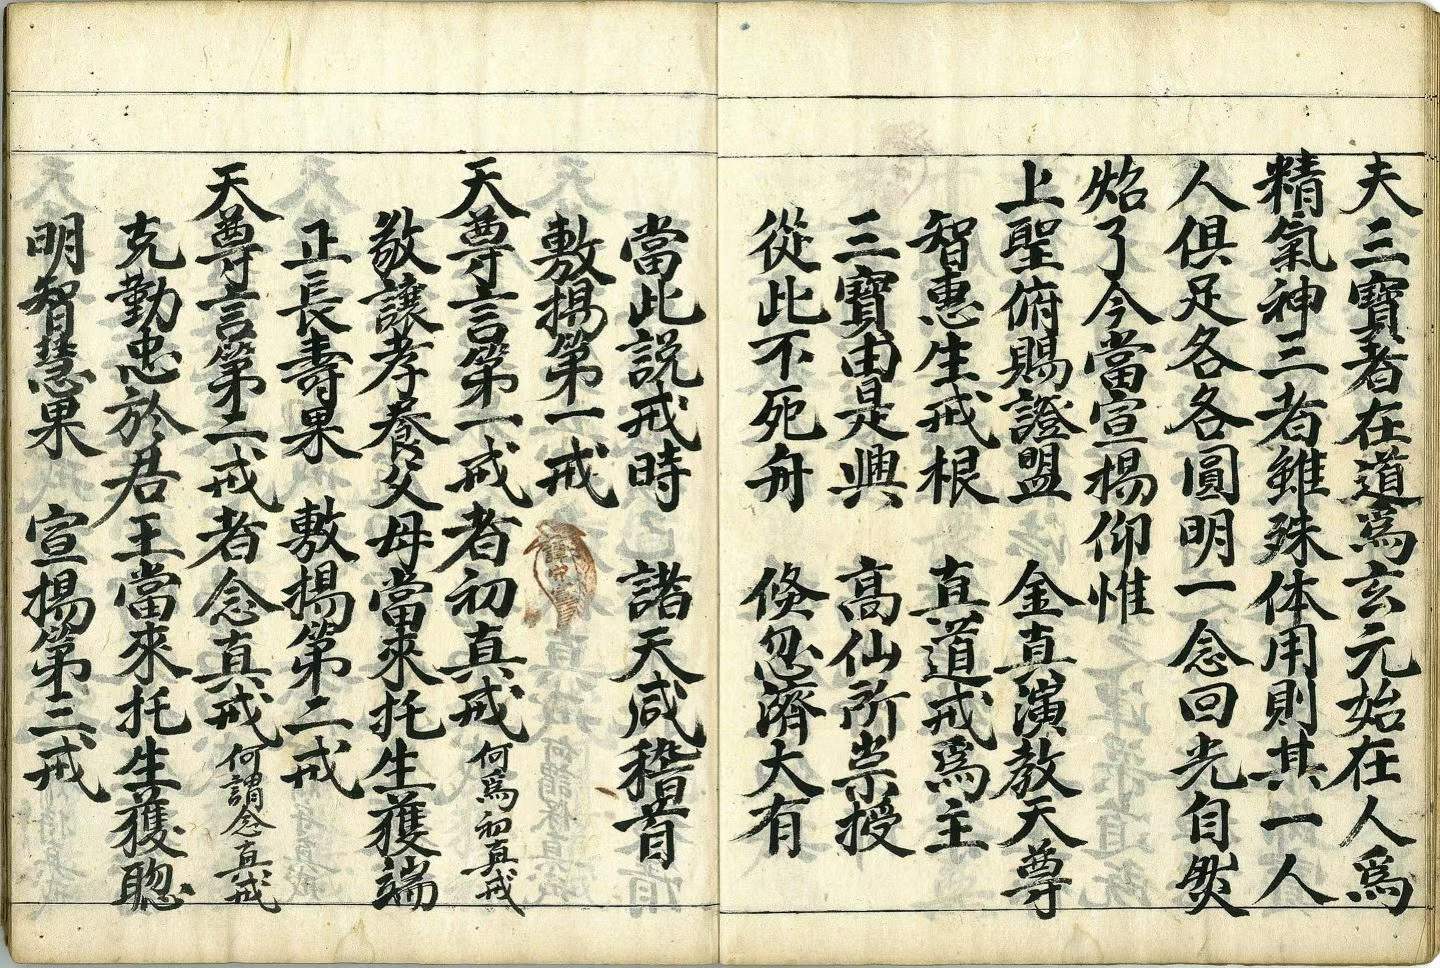 夫三寶者在道爲玄元始在人爲
精氣神三者雖殊体用則其一人
人俱足各各圓明一念回光自然
炲了今當宣揚仰惟
上聖俯賜證盟　金真演教天尊
智惠生戒根　真道戒爲主
三寶由是興　高仙所崇授
從此不死舟　倏忽濟大有
當此説戒時　諸天咸稽首
敷揚第一戒
天尊言第一戒者初真戒何爲初真戒
敬讓孝養父母當來托生獲端
正長壽果　敷揚第二戒
天尊言第二戒者念真戒何謂念真戒
克勤忠於君王當來托生獲聰
明智慧果　宣揚第三戒